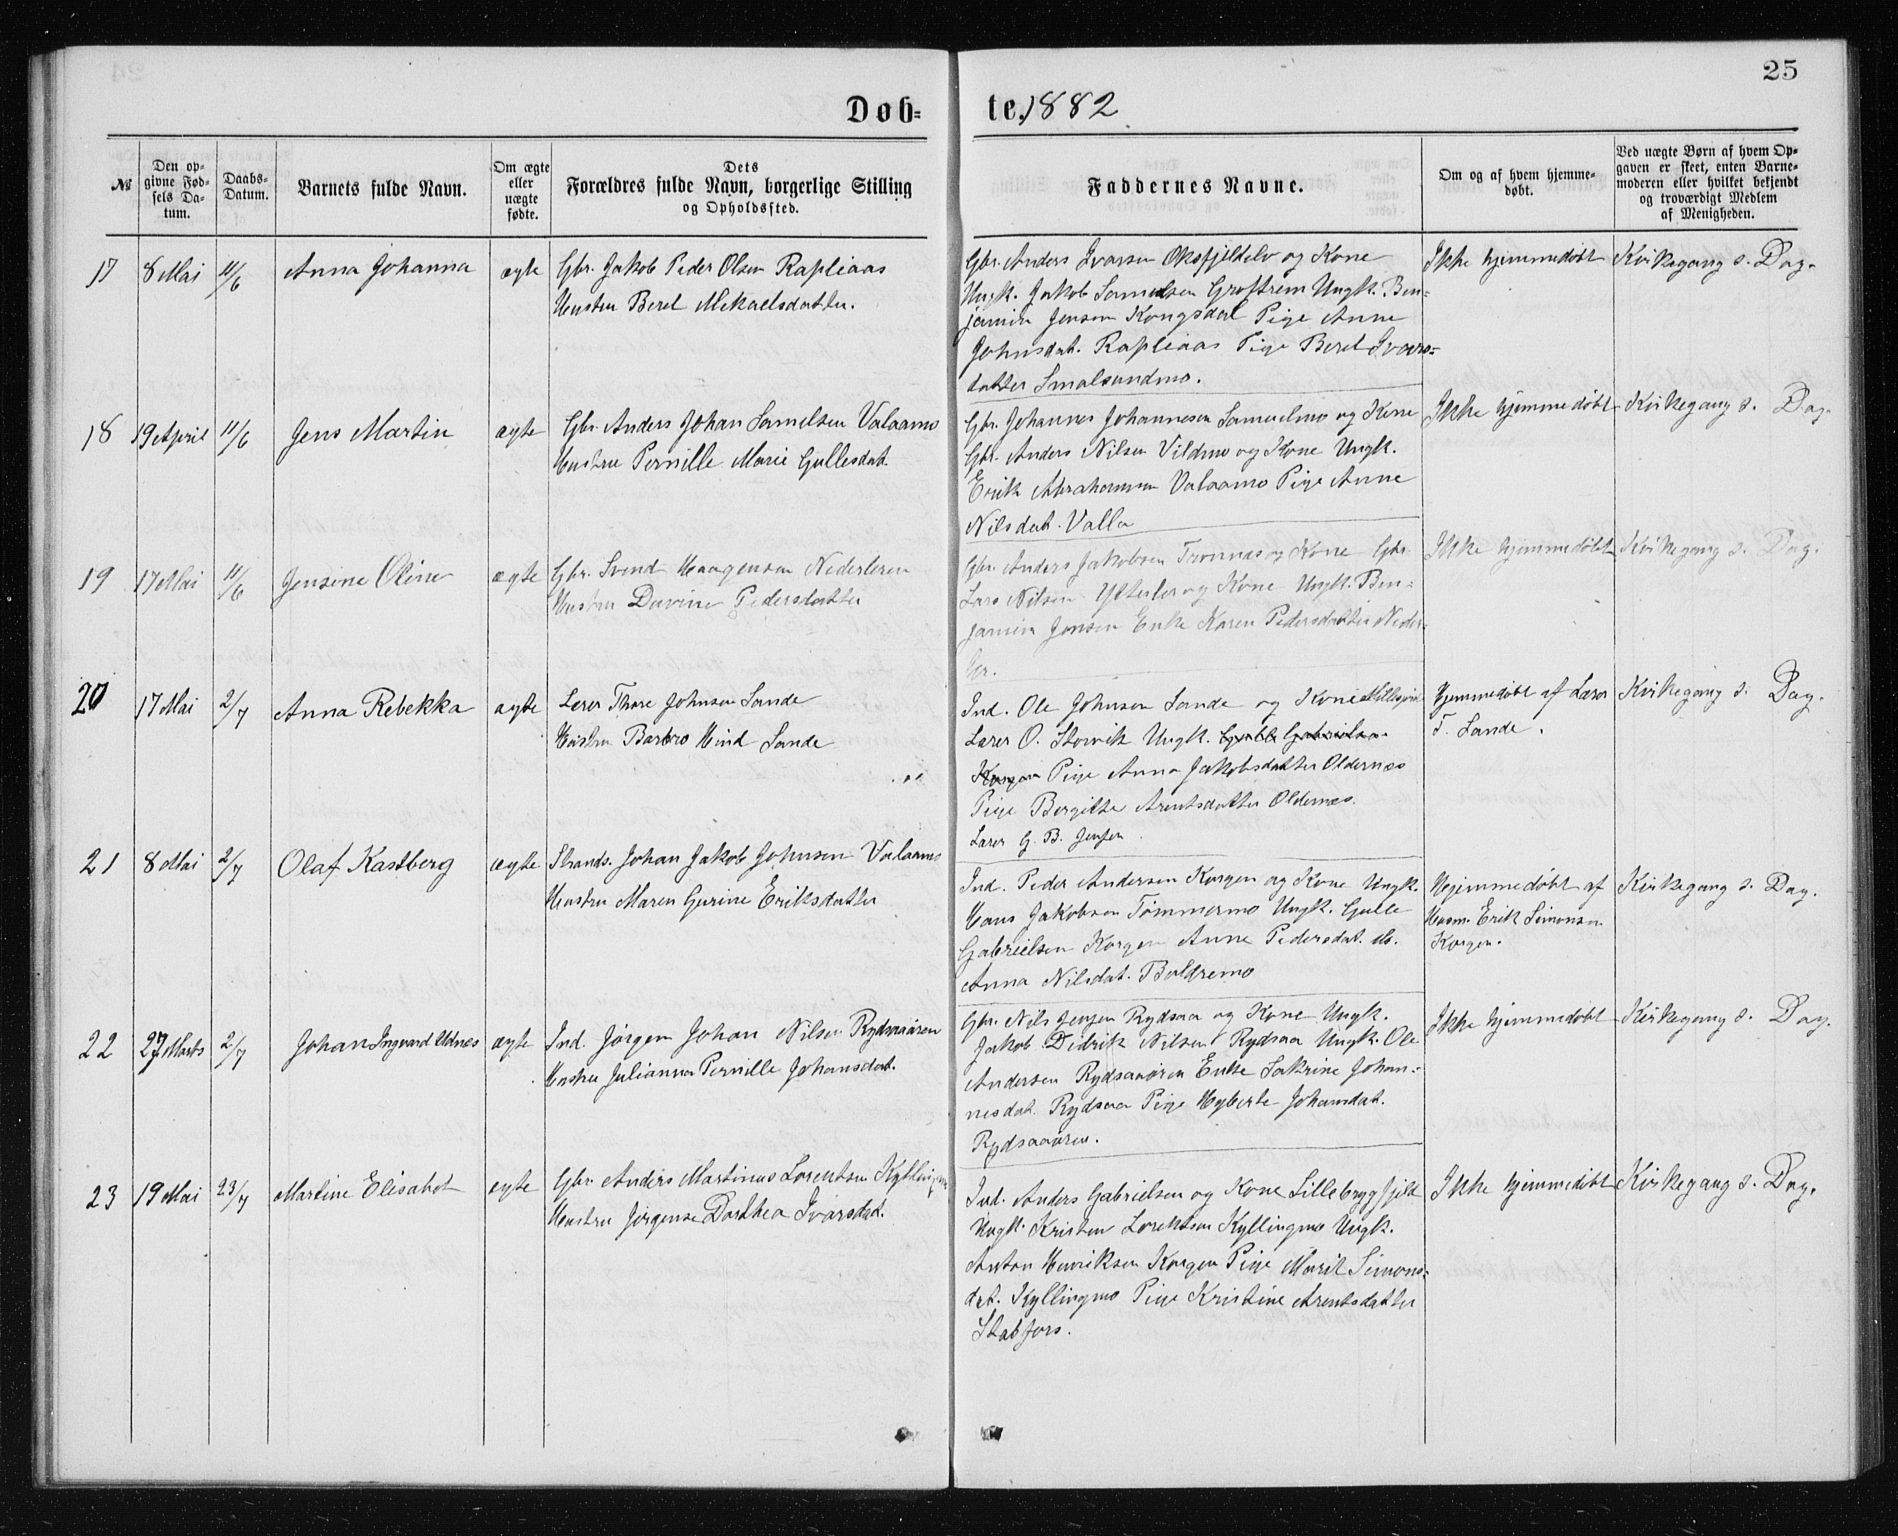 25
Døb=
te. 1882
№
Den op-
givne Fød-
sels Da-
tum.
Daabs-
Datum.
Barnets fulde Navn.
Om ægte
eller
uægte
fødte.
Dets
Forældres fulde Navn, borgerlige Stilling
og Opholdssted.
Faddernes Navne.
Om og af hvem hjemme-
døbt.
Ved uægte Børn af hvem Op-
gaven er skeet, enten Barne-
moderen eller hvilket bekjendt
og troværdigt Medlem
af Menigheden.
17 8 Mai 11/6 Anna Johanna ægte Gbr. Jakob Peder Olsen Rapliaas
Hustru Beret Mekaelsdatter.
Gbr. Anders Ivarsen Oksfjeldelv og Kone
Ungk. Jakob Samuelsen Groftrem Ungk. Ben=
jamin Jensen Kongsdal Pige Anne
Johnsdat. Rapliaas Pige Beret Ivars=
datter Smalsundmo.
Ikke hjemmedøbt Kirkegang s. Dag.
18 19 April 11/6 Jens Martin ægte Gbr. Anders Johan Samelsen Valaamo
Hustru Pernille Marie Gullesdat.
Gbr. Johannes Johannesen Samuelmo og Kone
Gbr. Anders Nilsen Vildmo og Kone Ungk.
Erik Abrahamsen Valaamo Pige Anne
Nilsdat. Valla
Ikke hjemmedøbt Kirkegang s. Dag.
19 17 Mai 11/6 Jensine Oline ægte Gbr. Svend Haagensen Nederleren
Hustru Davine Pedersdatter
Gbr. Anders Jakobsen Tronnas og Kone Gbr.
Lars Nilsen Ytterler og Kone Ungk. Ben=
jamin Jensen Enke Karen Pedersdatter Neder-
ler.
Ikke hjemmedøbt Kirkegang s. Dag.
20 17 Mai 2/7 Anna Rebekka ægte Lærer Thore Johnsen Sande
Hustru Barbro Hind Sande
Ind. Ole Johnsen Sande og Kone
Lærer O. Storvik Ungk. Gulle Gabrielsen
Korgen Pige Anna Jakobsdatter Oldernæs
Pige Bergitte Arentsdatter Oldernæs.
Lærer G. B. Jensen
Hjemmedøbt af Lærer
T. Sande.
Kirkegang s. Dag.
21 8 Mai 2/7 Olaf Kastberg ægte Strands. Johan Jakob Johnsen Valaamo
Hustru Maren Gurine Eriksdatter
Ind. Peder Andersen Korgen og Kone Ungk.
Hans Jakobsen Tømmermo Ungk. Gulle
Gabrielsen Korgen Anne Pedersdat. ds.
Anna Nilsdat. Boldremo
Hjemmedøbt af
Husm. Erik Simonsen
Korgen.
Kirkegang s. Dag.
22 27 Marts 2/7 Johan Ingvard Udnes ægte Ind. Jørgen Johan Nilsen Rydsaaøren
Hustru Julianna Pernille Johansdat.
Gbr. Nils Jensen Rydsaa og Kone Ungk.
Jakob Didrik Nilsen Rydsaa Ungk. Ole
Andersen Rydsaaøren Enke Sakrine Johan=
nesdat. Rydsaa Pige Hyberte Johansdat.
Rydsaaøren.
Ikke hjemmedøbt Kirkegang s. Dag.
23 19 Mai 23/7 Martine Elisabet ægte Gbr. Anders Martinus Lorentsen Kyllingmo
Hustru Jørgense Dorthea Ivarsdat.
Ind. Anders Gabrielsen og Kone Lillebryggfjeld
Ungk. Kristen Lorentsen Kyllingmo Ungk.
Anton Henriksen Korgen Pige Marit Simons=
dat. Kyllingmo Pige Kristine Arentsdatter
Stabfors.
Ikke hjemmedøbt Kirkegang s. Dag.